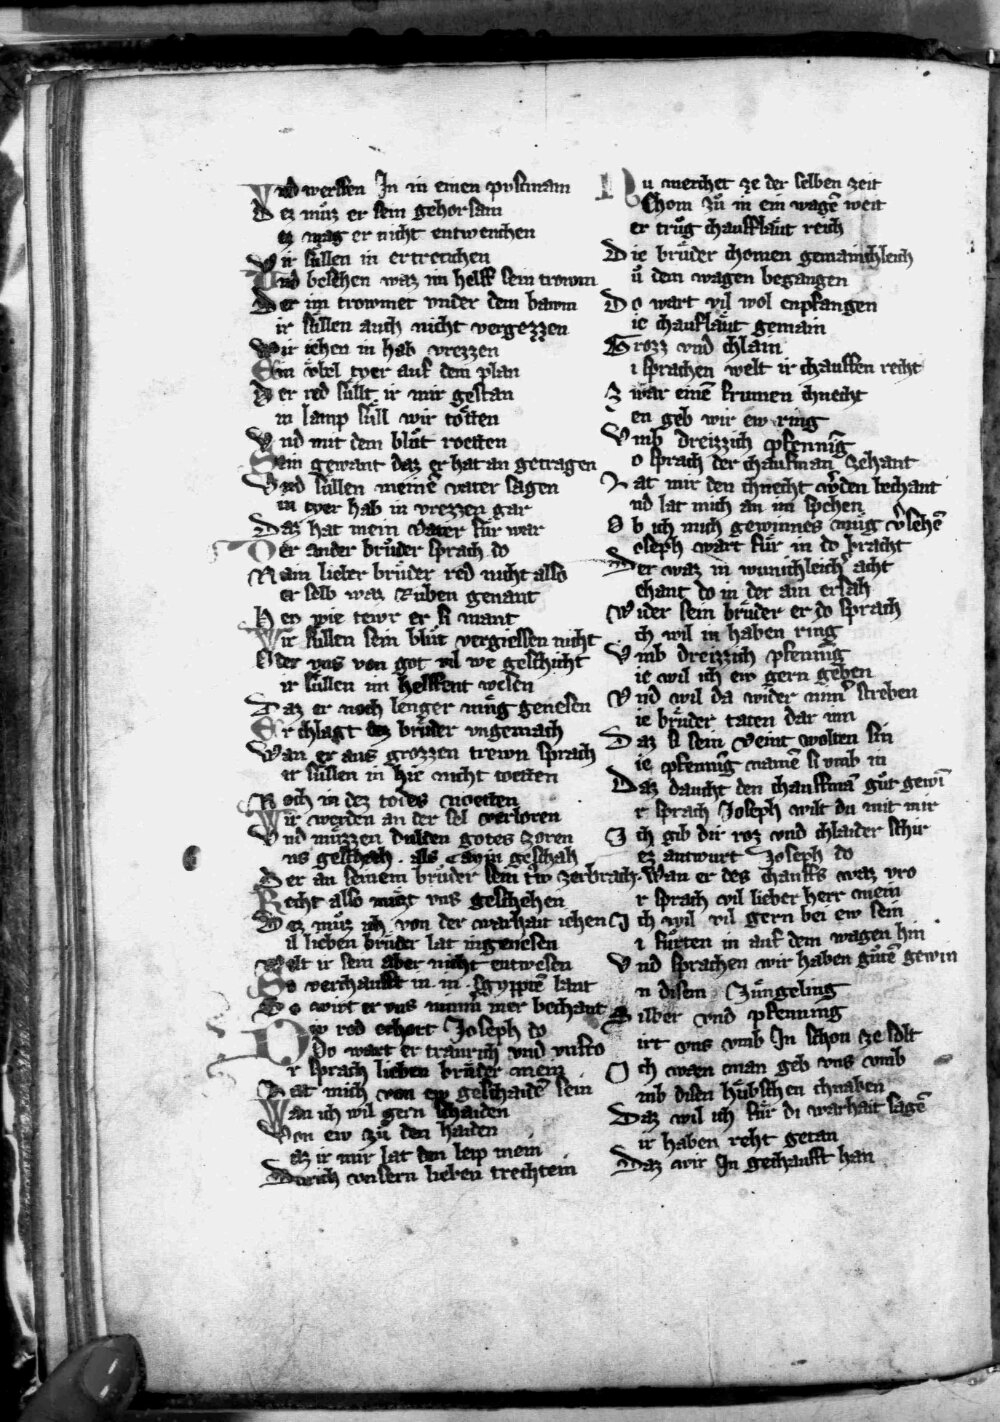 Vnd werffen In in einen prismam
Dez můz er sein gehorsam
ez mag er nicht entweichen
Wir sůllen in ertrenchen
Vnd besehen waz im helff sein trowm
Der im trowmet vnder dem bawm
ir sůllen auch nicht vergezzen
Wir iehen in hab vrezzen
Ein vbel tyer auf dem plan
Der red sůllt ir mir gestan
in lamp sůll wir toͤtten
Vnd mit dem blůt roetten
Sein gewant daz er hat an getragen
Vnd sůllen meinē vater sagen
in tyer hab in vrezzen gar
Daz hat mein vater fůr war
Der ander brůder sprach do
Nain lieber brůder red nicht also
er selb waz Ruben genant
Den wie tewr er si mant
Wir sůllen sein blůt vergiessen nicht
Oder vns von got vil we geschicht
ir sůllen im helffent wesen
Daz er noch lenger můg genesen
Er chlagt dez brůder vngemach
Wan er aus grozzen trewn sprach
ir sůllen in hie nicht toetten
Noch in dez todes noetten
Wir werden an der sel verloren
Vnd můzzen dulden gotes zoren
ns geschech . als Caym geschah
Der an seinem brůder sein trw zerbrach
Recht also můzt vns geschehen
Dez můz ich von der warhait iehen
il lieben brůder lat in genesen
Welt ir sein aber nicht entwesen
So verchaufft in . in . Egyppten lant
So wirt er vns nimm mer bechant
Dw red erhort Joseph do
Do wart er traurich vnd vnfro
r sprach lieben brůder mein
Lat mich von ew geschaidē sein
Wan ich wil gern schaiden
Von ew zů den haiden
az ir mir lat den leip mein
Durich vnsern lieben trechtein
Nu merchet ze der selben zeit
Chom zů in ein wagē weit
er trůg chaufflaͤut reich
Die brůder chomen gemainchleich
ů dem wagen begangen
Do wart vil wol enpfangen
ie chauflaͤut gemain
Grozz vnd chlain
i sprachen welt ir chauffen recht
Zwar einē frumen chnecht
en geb wir ew ring
Vmb dreizzich pfennig
o sprach der chaufman zehant
Lat mir den chnecht wͤden bechant
nd lat mich an im spehen
Ob ich mich gewinnes můg vͤsehē
oseph wart fůr in do bracht
Der waz in wunichleichͤ acht
ehant do in der ain ersah
Wider sein brůder er do sprach
ch wil in haben ring
Vmb dreizzich pfennig
ie wil ich ew gern geben
Vnd wil da wider nimͤ streben
ie brůder taten dar inn
Daz si sein veint wolten sin
ie pfennig namē si vmb in
Daz daucht den chauffmā gůt gewī
r sprach Joseph wilt du mit mir
Ich gib dir roz vnd chlaider schir
ez antwurt Joseph do
Wan er des chauffs waz vro
r sprach vil lieber herr mein
Ich wil vil gern bei ew sein
i fůrten in auf dem wagen hin
Vnd sprachen wir haben gůtē gewin
n disem Jůngeling
Silber vnd pfenning
irt vns vmb In schon ze solt
Ich waen man geb vns vmb
mb disen hůbschen chnaben
Daz wil ich fůr di warhait sagē
ir haben reht getan
Daz wir In gechaufft han